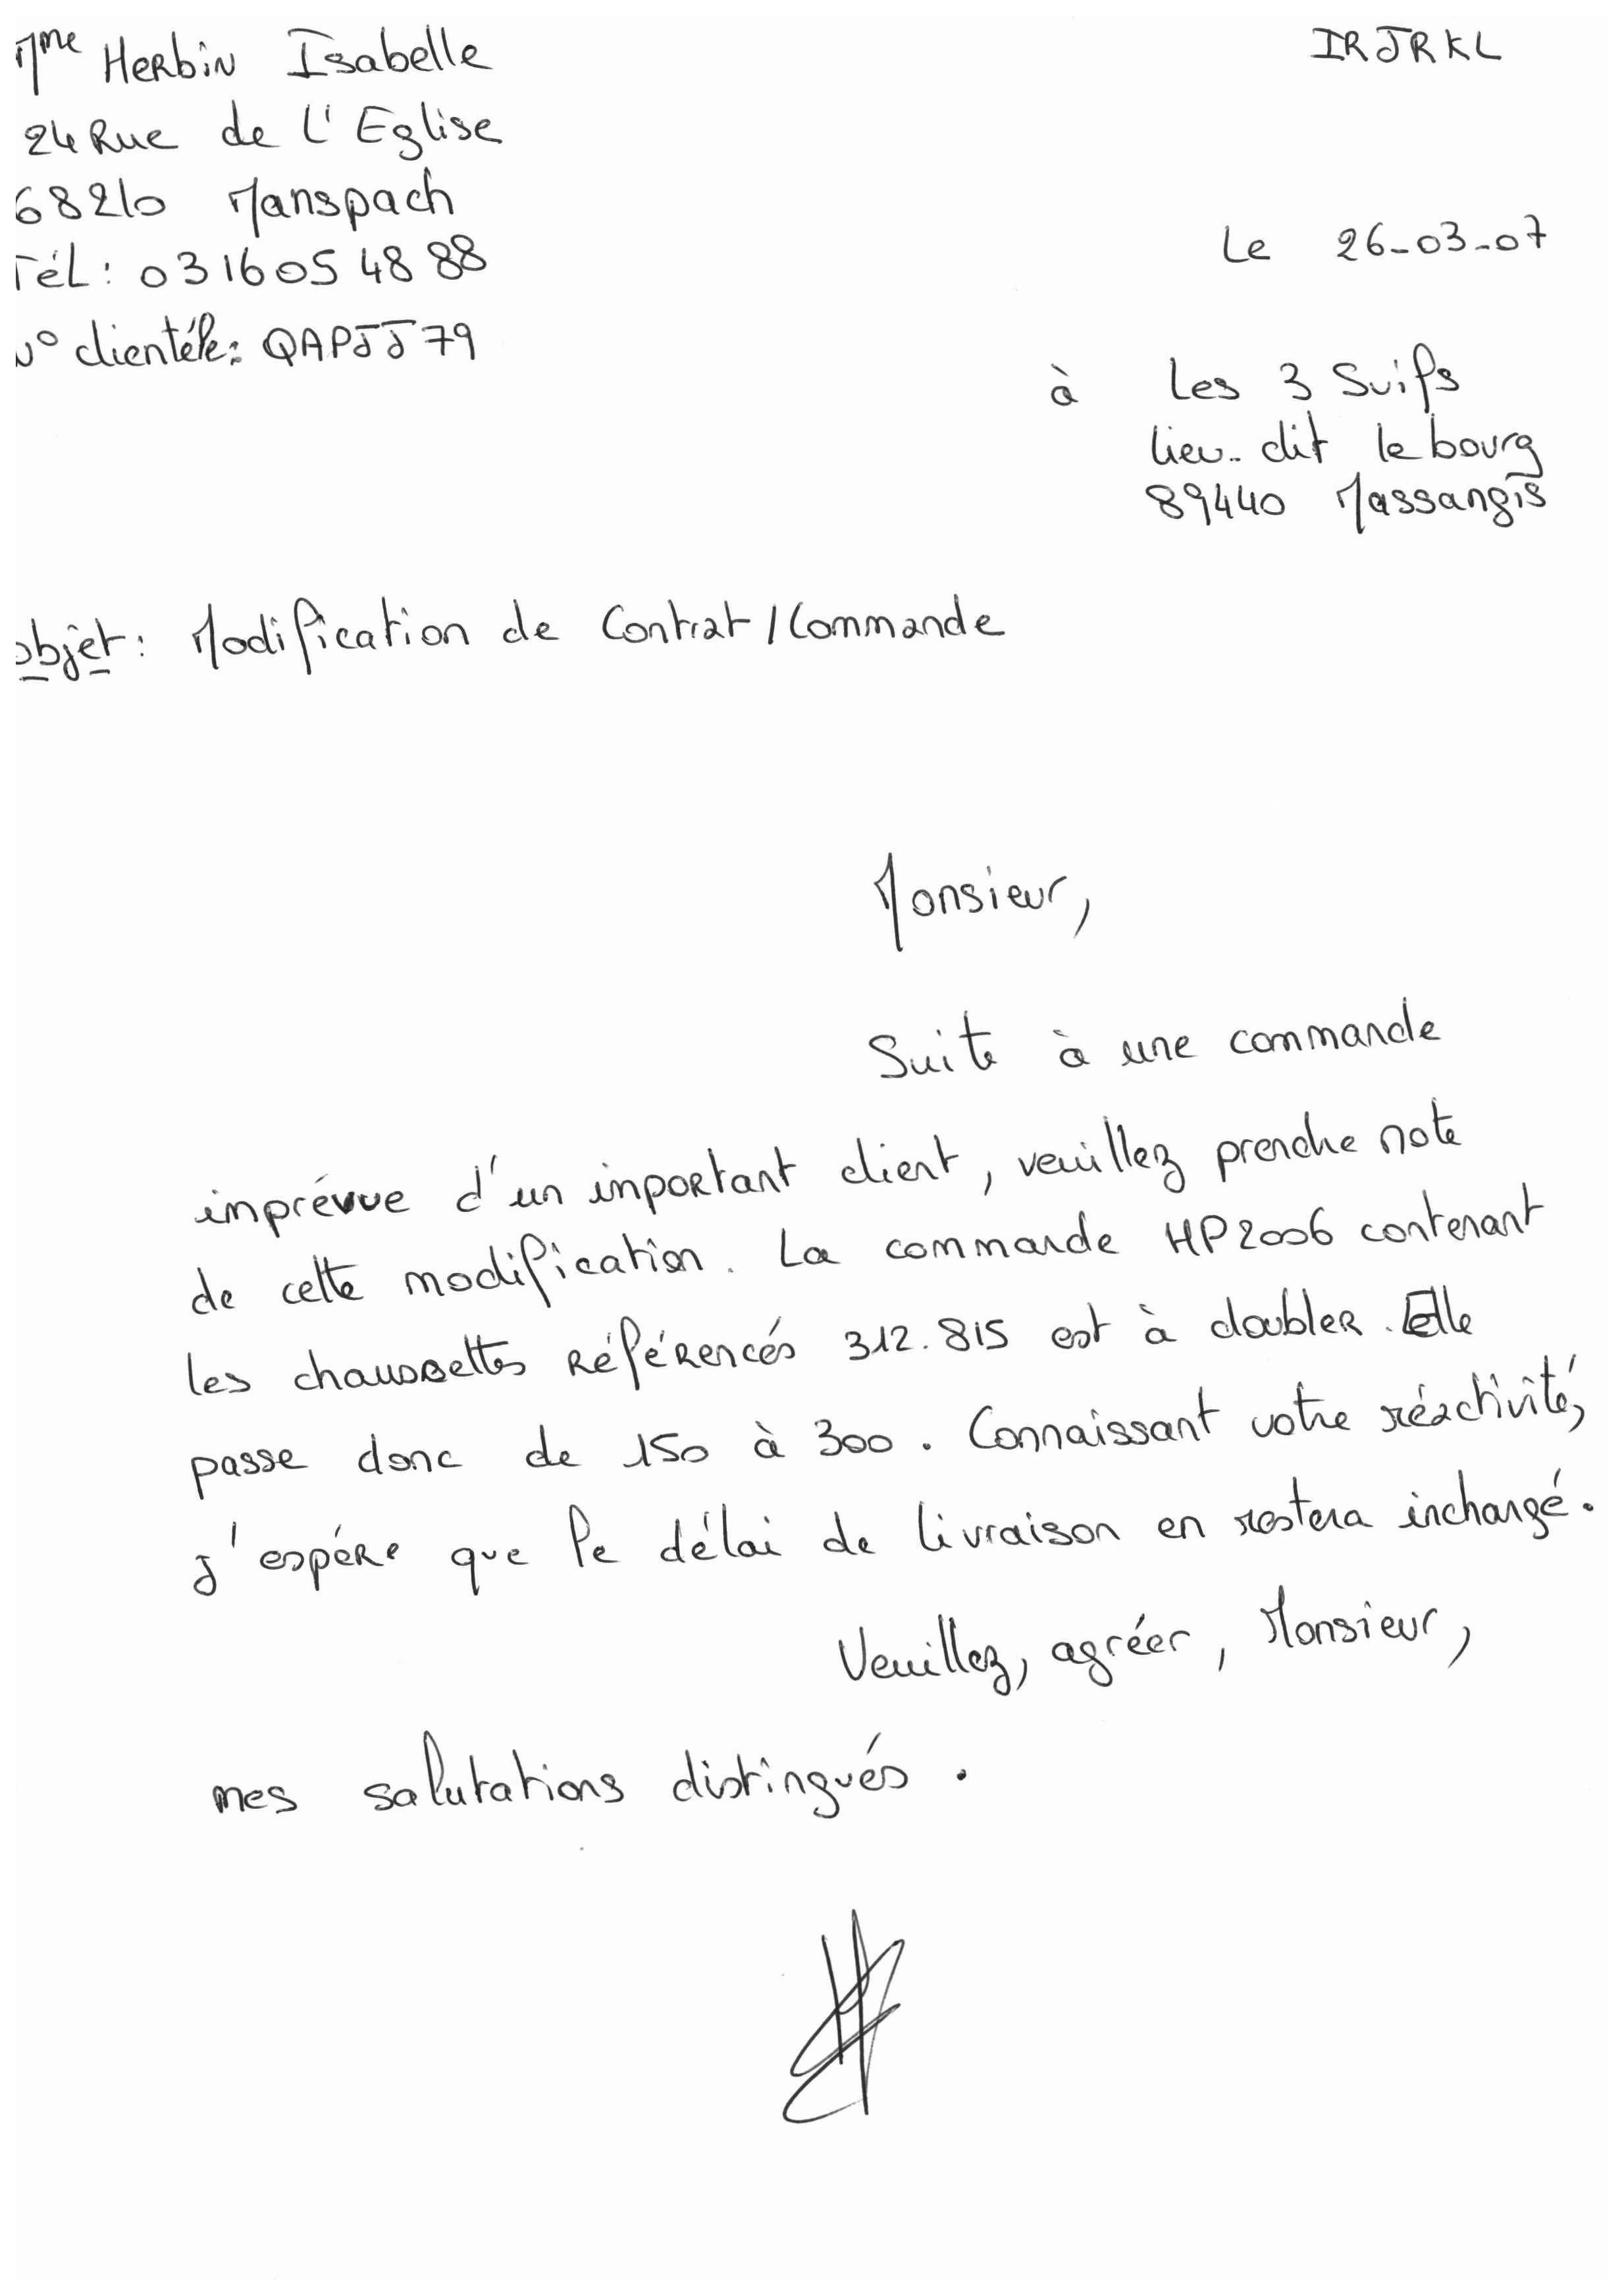 Mme Herbin Isabelle
IRJRKL
24 Rue de l'Eglise
68210 Manspach
Tél : 03 16 05 48 88
Le 26-03-07
N° clientéle : QAPJJ79
à Les 3 Suifs
lieu-dit le bourg
89440 Massangis
objet : Modification de Contrat / Commande
Monsieur,
Suite à une commande
imprévue d'un inportant client, veuillez prendre note
de cette modification. La commande HP2006 contenant
les chaussettes référencés 312.815 est à doubler. Elle
passe donc de 150 à 300. Connaissant votre réactivité,
j'espére que le délai de livraison en restera inchangé.
Veuillez, agréer, Monsieur,
mes salutations distingués.